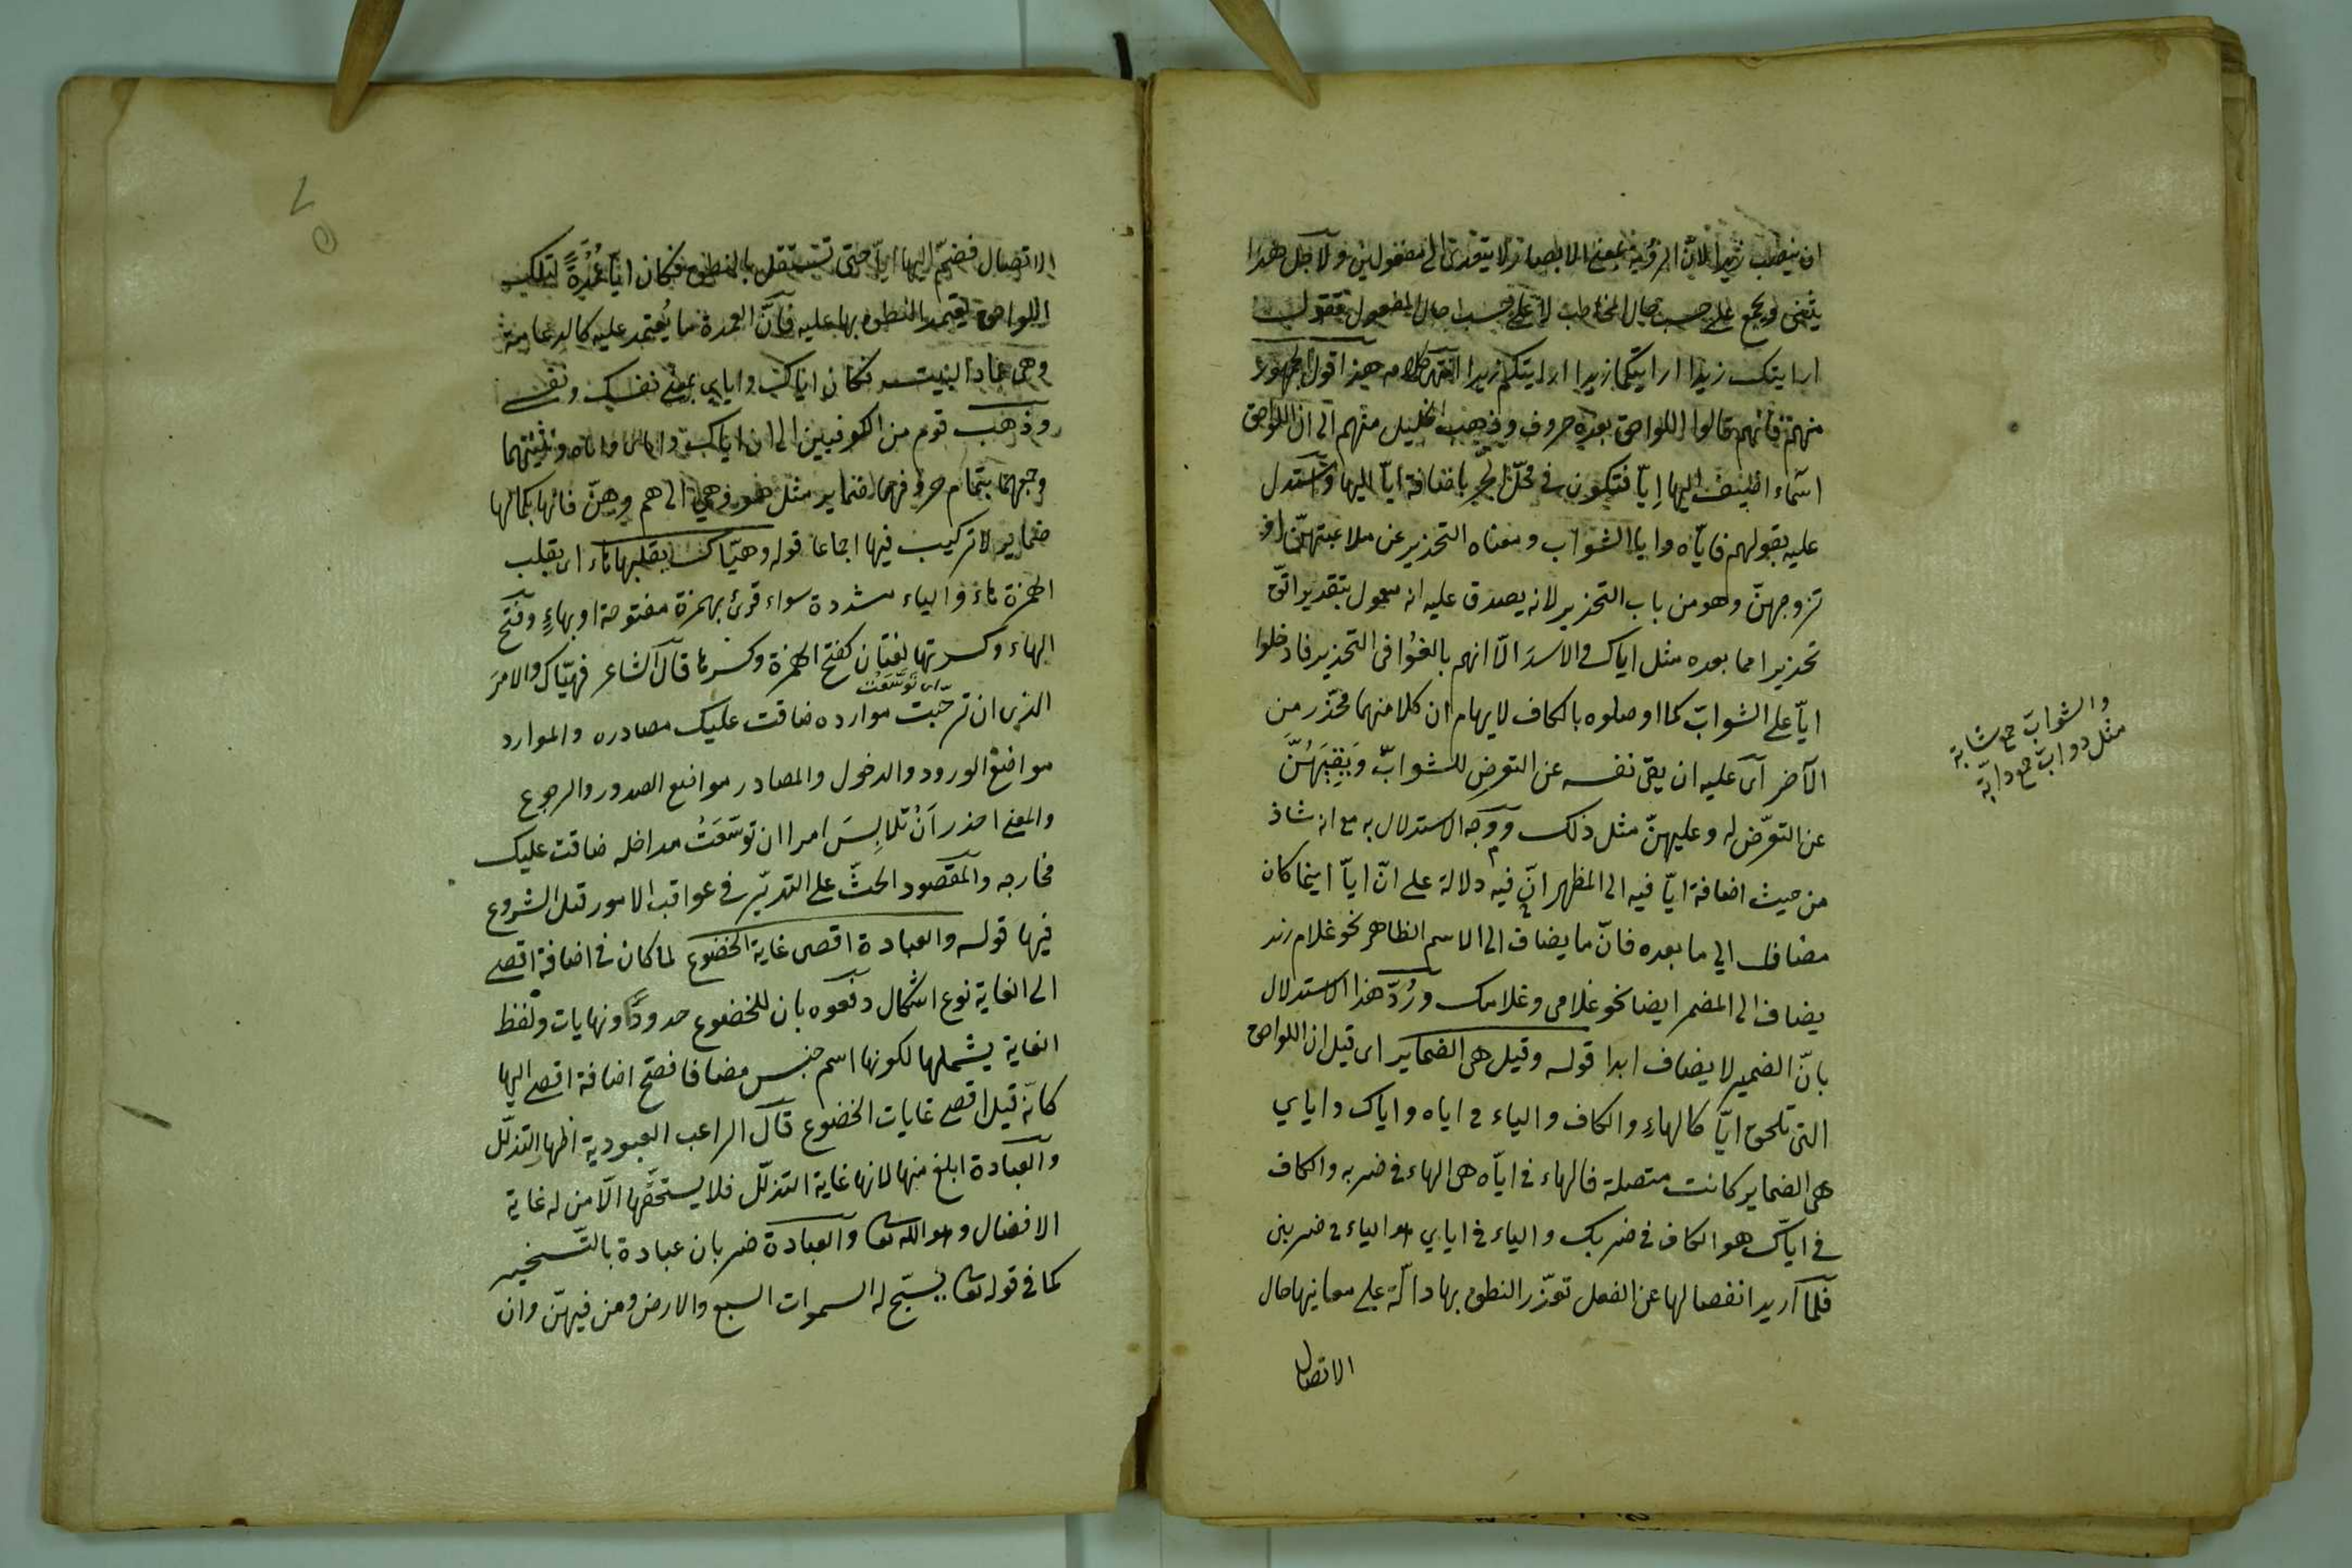 ان ينصب زيدا لان الرؤية بمعنى الابصار لا يتعدى الى مفعولين ولاجل هذا
يثنى ويجمع على حسب حال المخاطب لا على حسب حال المفعول فتقول
ارايتك زيدا ارايتكما زيدا ارايتكم زيدا انتهى كلامه هذا قول الجمهور
منهم فانهم قالوا اللواحق بعده حروف وذهب الخليل منهم الى ان اللواحق
اسماء اضيف اليها ايّا فتكون في محلّ الجرّ باضافة ايّا اليها واستدل
عليه بقولهم فايّاه وايا الشوابّ ومعناه التحذير عن ملاعبتهنّ او
تزوجهنّ وهو من باب التحذير لانه يصدق عليه انه معمول بتقدير اتّق
تحذيرا مما بعده مثل اياك والاسدَ الّا انهم بالغُوا فى التحذير فادخلوا
ايّا على الشوابّ كما اوصلوه بالكاف لايهام ان كلا منهما محذر من
الآخر اى عليه ان يقى نفسه عن التعرض للشوابّ وَيَقِيَهُنَّ
عن التعرّض له وعليهنّ مثل ذلك ووجه الاستدلال به مع انه شاذ
من حيث اضافة ايّا فيه الى المظهر انّ فيه دلالة على انّ ايّا اينما كان
مضاف الي ما بعده فانّ ما يضاف الى الاسم الظاهر نحو غلام زيد
يضاف الى المضمر ايضا نحو غلامى وغلامك ورُدّ هذا الاستدلال
بانّ الضمير لا يضاف ابدا قوله وقيل هى الضماير اى قيل ان اللواحق
التى تلحق ايّا كالهاءِ والكاف والياء فى اياه واياك واياي
هى الضماير كانت متصلة فالهاء فى ايّاه هى الهاء فى ضربه والكاف
فى ايّاك هو الكاف فى ضربك والياء فى اياي هو الياء فى ضربنى
فلمّا اريد انفصالها عن الفعل تعذّر النطق بها دالّة على معانيها حال
الاتصال
والشوابّ جمع شابة
مثل دوابّ جمع دابّة
الاتصال فضمّ اليها ايّا حتى تستقل بالنطق فكان ايّا عُمْدَةً لتلك
اللواحق يعتمد النطق بها عليه فانّ العمدة ما يُعتمد عليه كالدعامة
وهى عماد البيت فكان اياك واياي بمعنى نفسك ونفسى
وذهب قوم من الكوفيين الى ان اياك واياى واياه وتثنيتهما
وجمعهما بتمام حروفهما ضماير مثل هو وهى الى هم وهنّ فانها بكمالها
ضماير لا تركيب فيها اجماعا قوله وهيّاك بقلبها هاء اى بقلب
الهمزة هاء والياء مشددة سواء قرئ بهمزة مفتوحة او بهاءٍ وفتح
الهاء وكسرتها لغتان كفتح الهمزة وكسرها قال الشاعر فهيّاك والامرَ
اى توسّعَتْ
الذى ان ترحّبت موارده ضاقت عليك مصادره والموارد
مواضع الورود والدخول والمصادر مواضع الصدور والرجوع
والمعنى احذر اَنْ تلابِسَ امرا ان توسّعَتْ مداخله ضاقت عليك
مخارجه والمقصود الحثّ على التدبّر فى عواقب الامور قبل الشروع
فيها قوله والعبادة اقصى غاية الخضوع لما كان فى اضافة اقصى
الى الغاية نوع اشكال دفعوه بان للخضوع حدودًا ونهايات ولفظ
الغاية يشملها لكونها اسم جنس مضافا فصح اضافة اقصى اليها
كانّه قيل اقصى غايات الخضوع قال الراغب العبودية اظهار التذلّل
والعبادة ابلغ منها لانها غاية التذلّل فلا يستحقّها الّا من له غاية
الافضال وهو الله تعا والعبادة ضربان عبادة بالتّسخير
كما فى قوله تعا يسبّح له السموات السبع والارض ومن فيهنّ وان